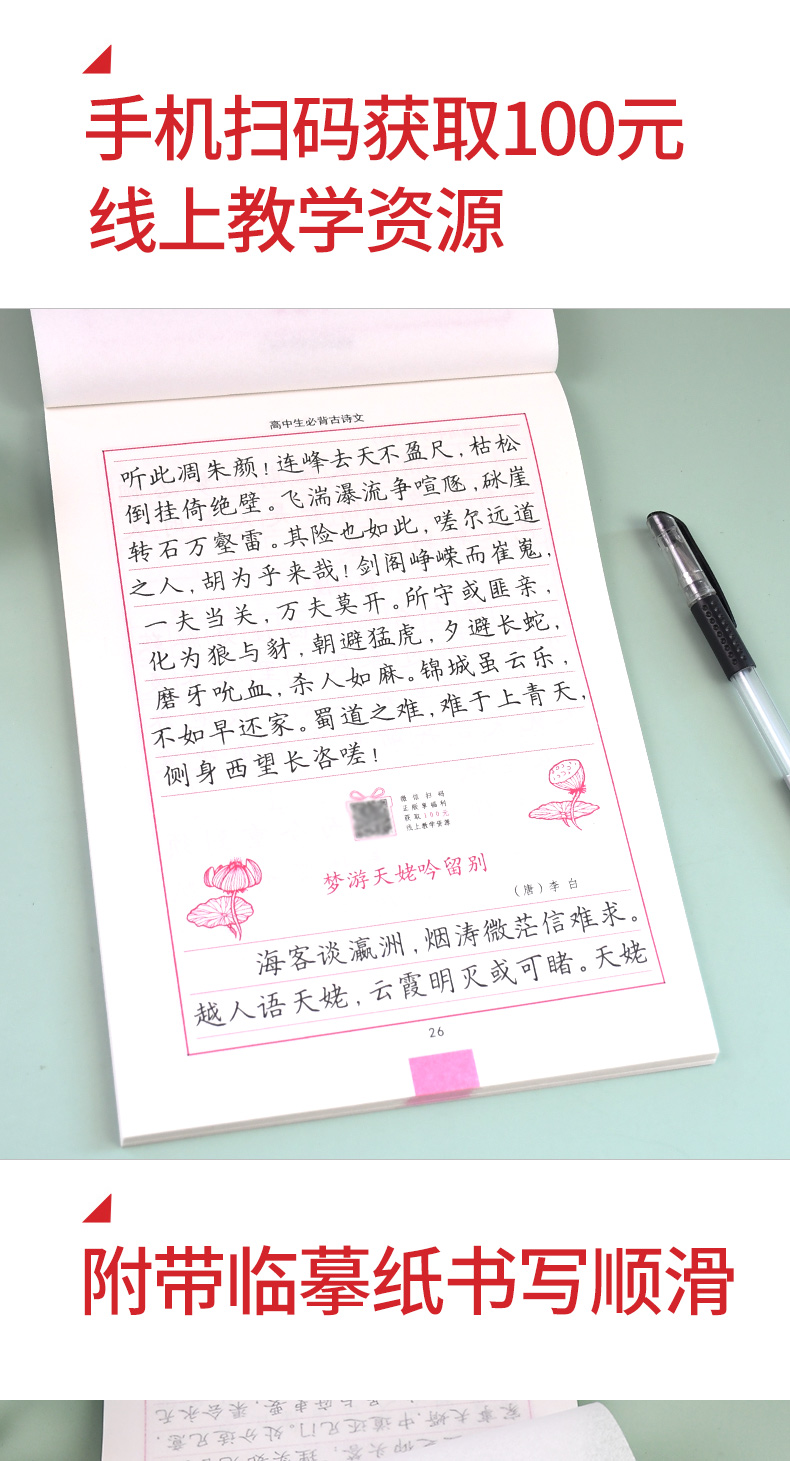 手机扫码获取100元
线上教学资源
高中生必背古诗文
听此凋朱颜！连峰去天不盈尺，枯松
倒挂倚绝壁。飞湍瀑流争喧豗，砯崖
转石万壑雷。其险也如此，嗟尔远道
之人，胡为乎来哉！剑阁峥嵘而崔嵬，
一夫当关，万夫莫开。所守或匪亲，
化为狼与豺，朝避猛虎，夕避长蛇，
磨牙吮血，杀人如麻。锦城虽云乐，
不如早还家。蜀道之难，难于上青天，
侧身西望长咨嗟！
微信扫码
正版享福利
获取100元
线上教学资源
梦游天姥吟留别
（唐）李白
海客谈瀛洲，烟涛微茫信难求。
越人语天姥，云霞明灭或可睹。天姥
26
附带临摹纸书写顺滑